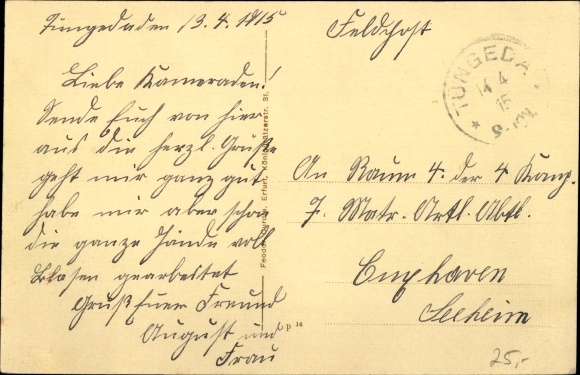 Tüngeda den 13.4.1915
Feldpost
Liebe Kameraden!
Sende Euch von hier
aus die herzl. Grüße
geht mir ganz gut
habe mir aber schon
die ganze Hände voll
Blasen gearbeitet
Gruß Euer Freund
August und
Frau
TÜNGEDA
14 4
15
An Raum 4. der 4 Komp.
7. Matr. Artl. Abtl.
Cuxhaven
Seeheim
Erfurt,
25,-